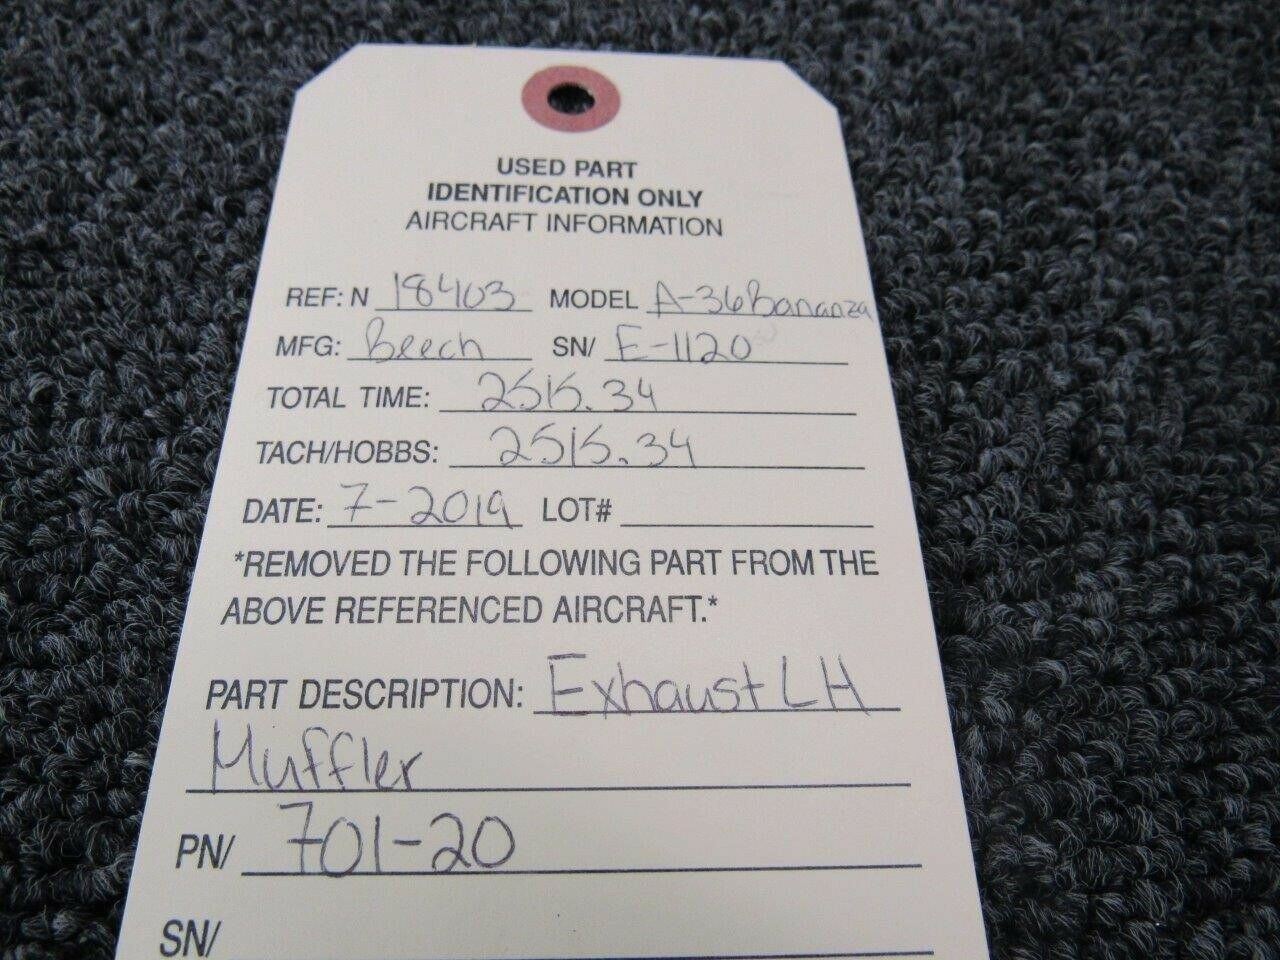 USED PART
IDENTIFICATION ONLY
AIRCRAFT INFORMATION
REF: N 18403 MODEL A-36 Bananza
MFG: Beech SN/ E-1120
TOTAL TIME: 2515.34
TACH/HOBBS: 2515.34
DATE: 7-2019 LOT#
*REMOVED THE FOLLOWING PART FROM THE
ABOVE REFERENCED AIRCRAFT.*
PART DESCRIPTION: Exhaust LH
Muffler
PN/ 701-20
SN/